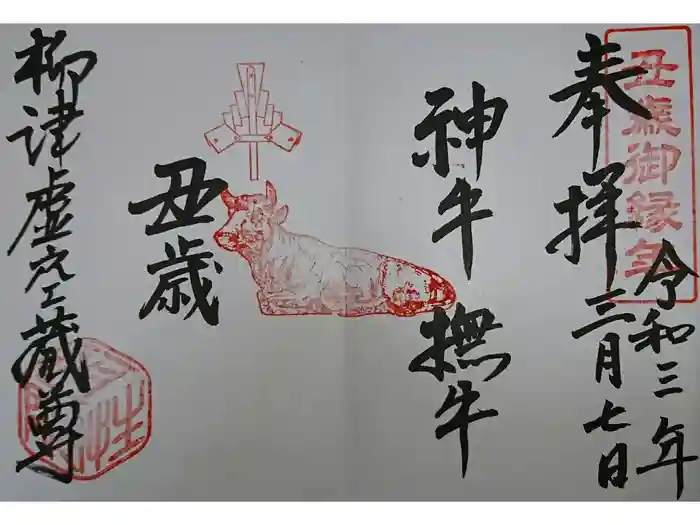 丑歳御縁年
奉拝
令和三年
三月七日
神牛
撫牛
丑歳
柳津虚空蔵尊